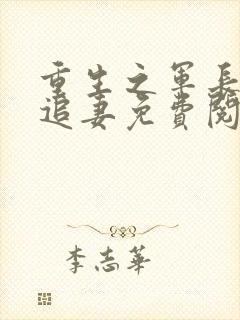 重生之军长
追妻免費閱
李志華